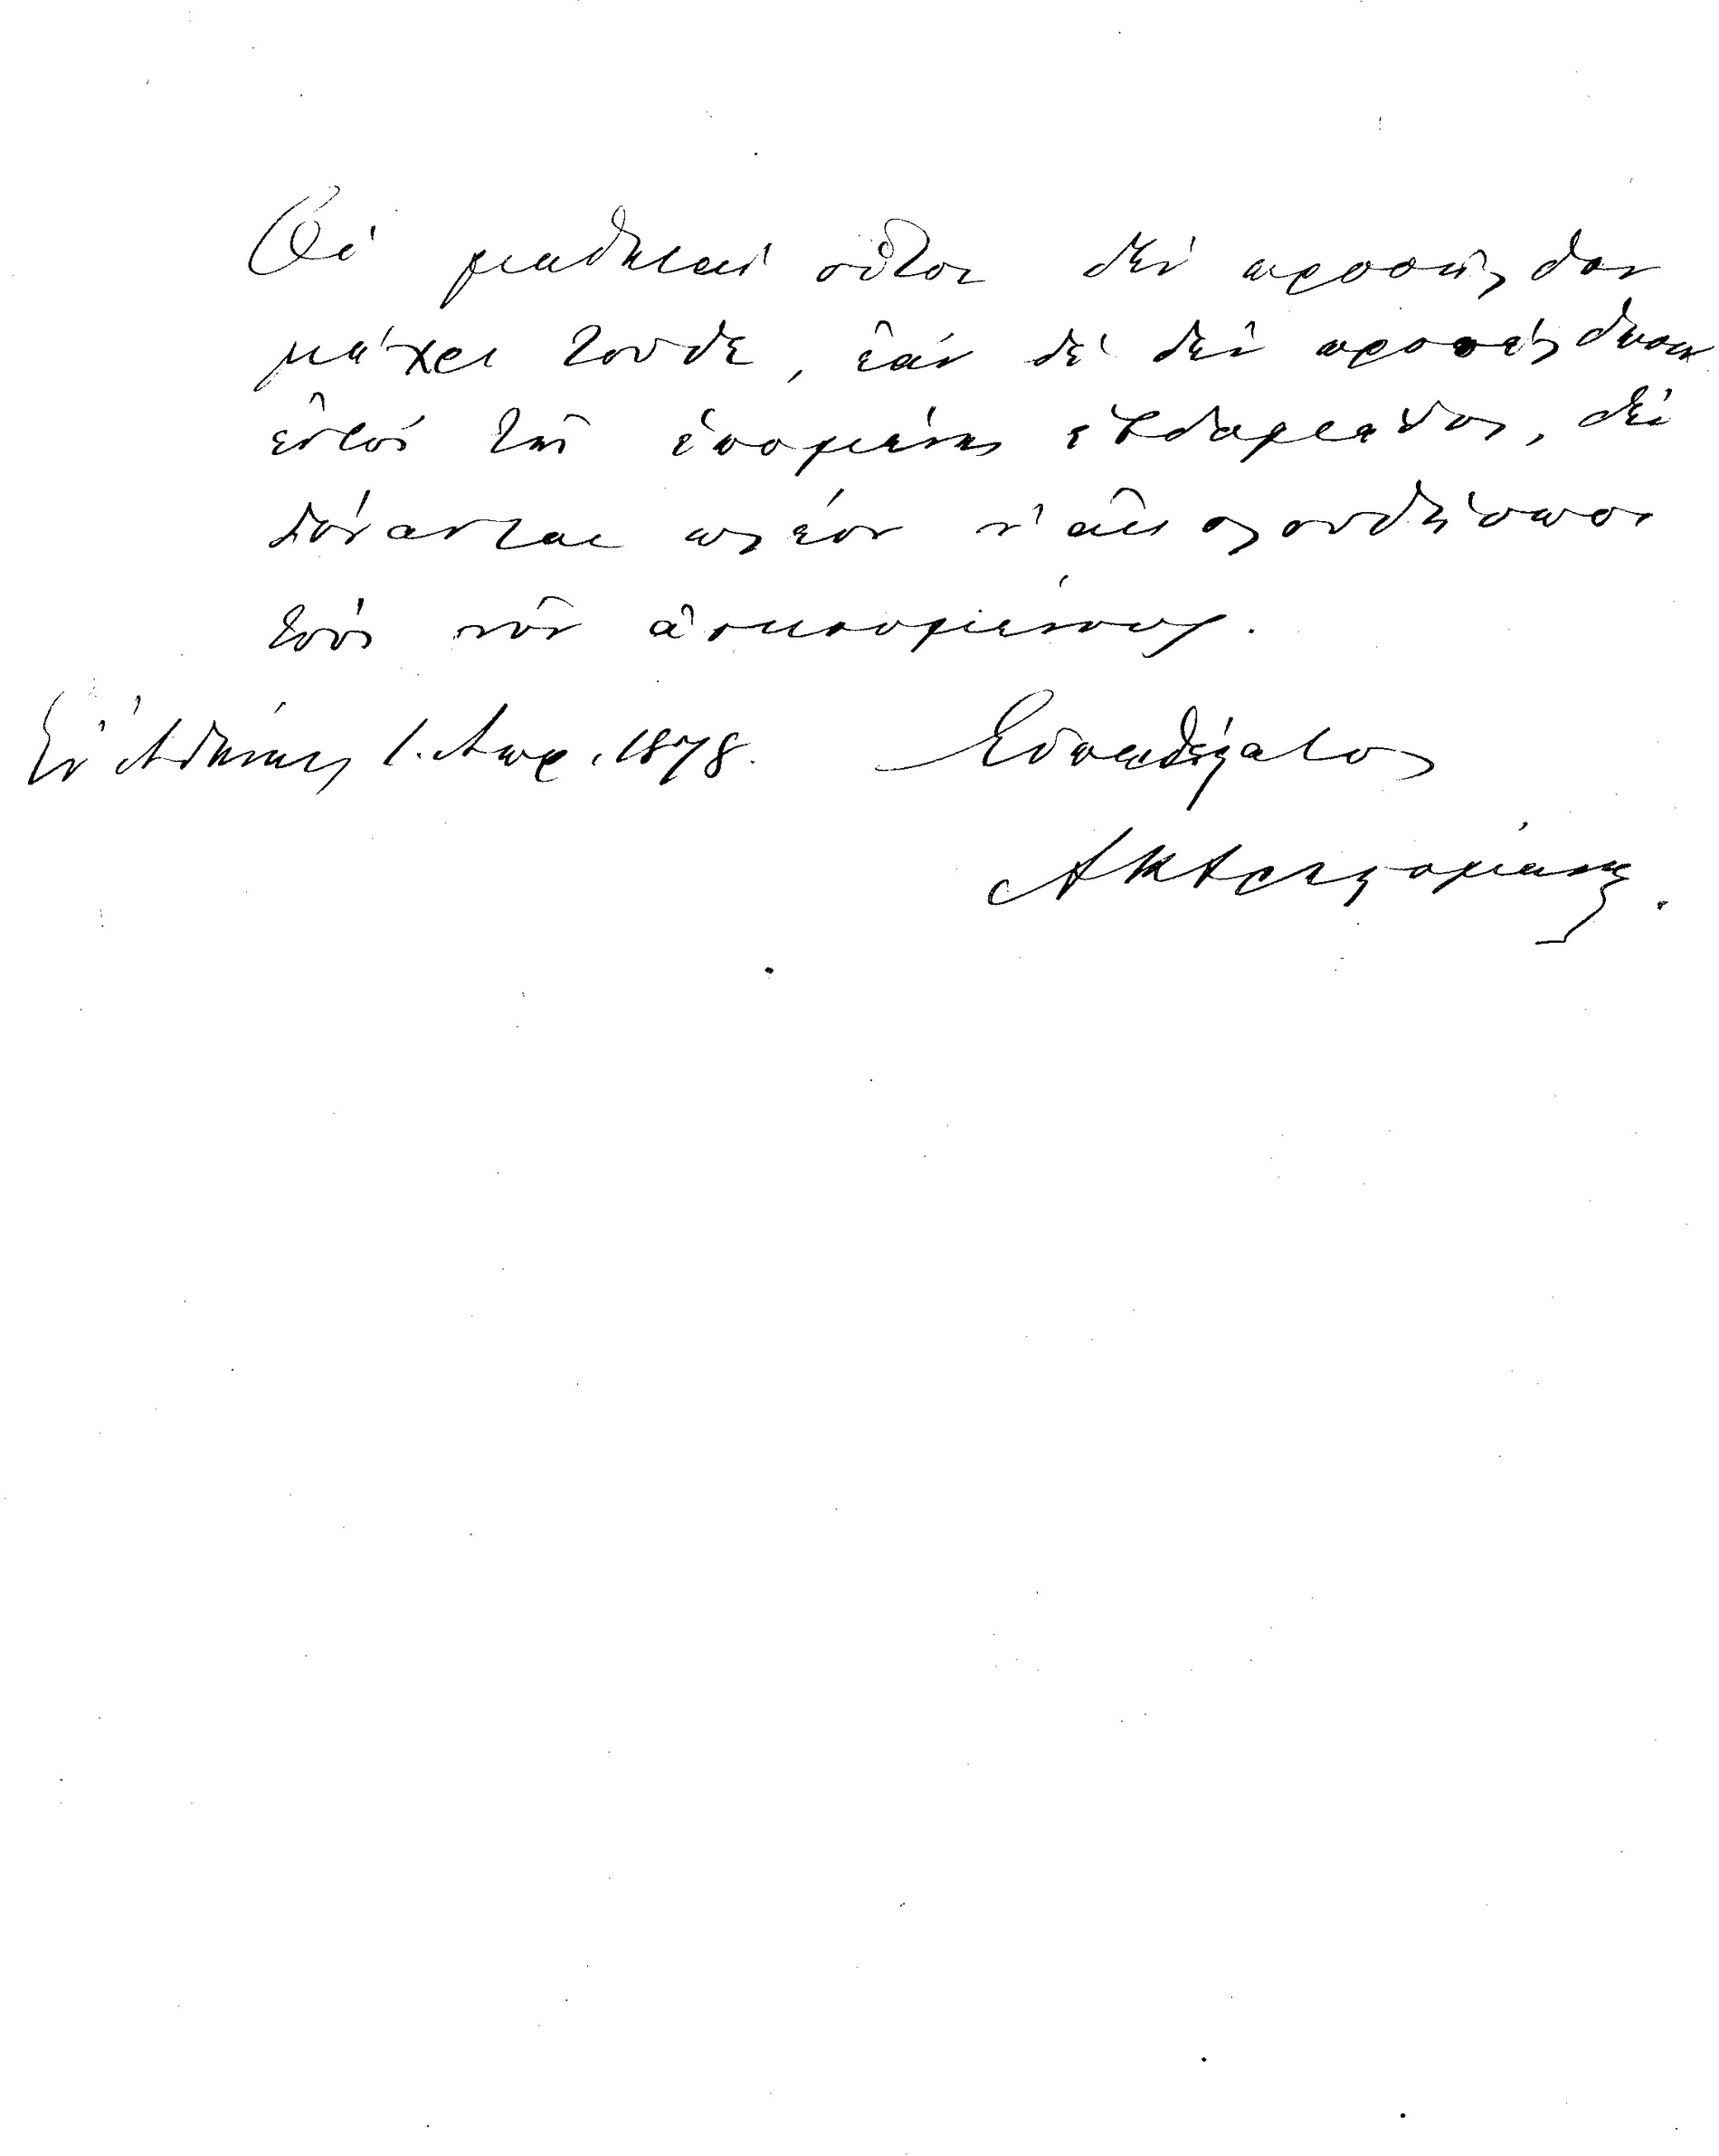 Οἱ μαθηταὶ οὗτοι δὲν προσῆλθον
μέχρι τοῦδε, ἐὰν δὲ δὲν προσέλθωσιν
ἐντὸς τῆς ἑπομένης ἑβδομάδος, δὲν
δύνανται πλέον ν' ἀκολουθήσωσι
τοὺς νῦν ἀσκουμένους.
Ἐν Ἀθήναις 1. Απρ. 1878. Εὐπειθέστατος